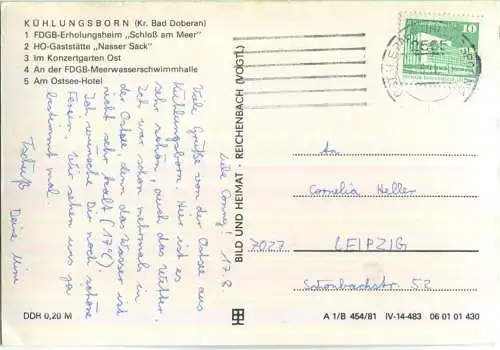 KÜHLUNGSBORN (Kr. Bad Doberan)
1 FDGB-Erholungsheim „Schloß am Meer"
2 HO-Gaststätte „Nasser Sack"
3 Im Konzertgarten Ost
4 An der FDGB-Meerwasserschwimmhalle
5 Am Ostsee-Hotel
Liebe Conny! 17.8.
Viele Grüße von der Ostsee aus
Kühlungsborn. Hier ist es
sehr schön, auch das Wetter.
Ich war schon mehrmals in
der Ostsee, denn das Wasser ist
nicht sehr kalt (17°C)
Ich wünsche Dir noch schöne
Ferien. Wir sehen uns ja
bestimmt mal.
Tschüß Deine
BILD UND HEIMAT · REICHENBACH (VOGTL)
10
2565
An
Cornelia Heller
7027 LEIPZIG
Schönbachstr. 52
DDR 0,20 M
A 1/B 454/81 IV-14-483 06 01 01 430